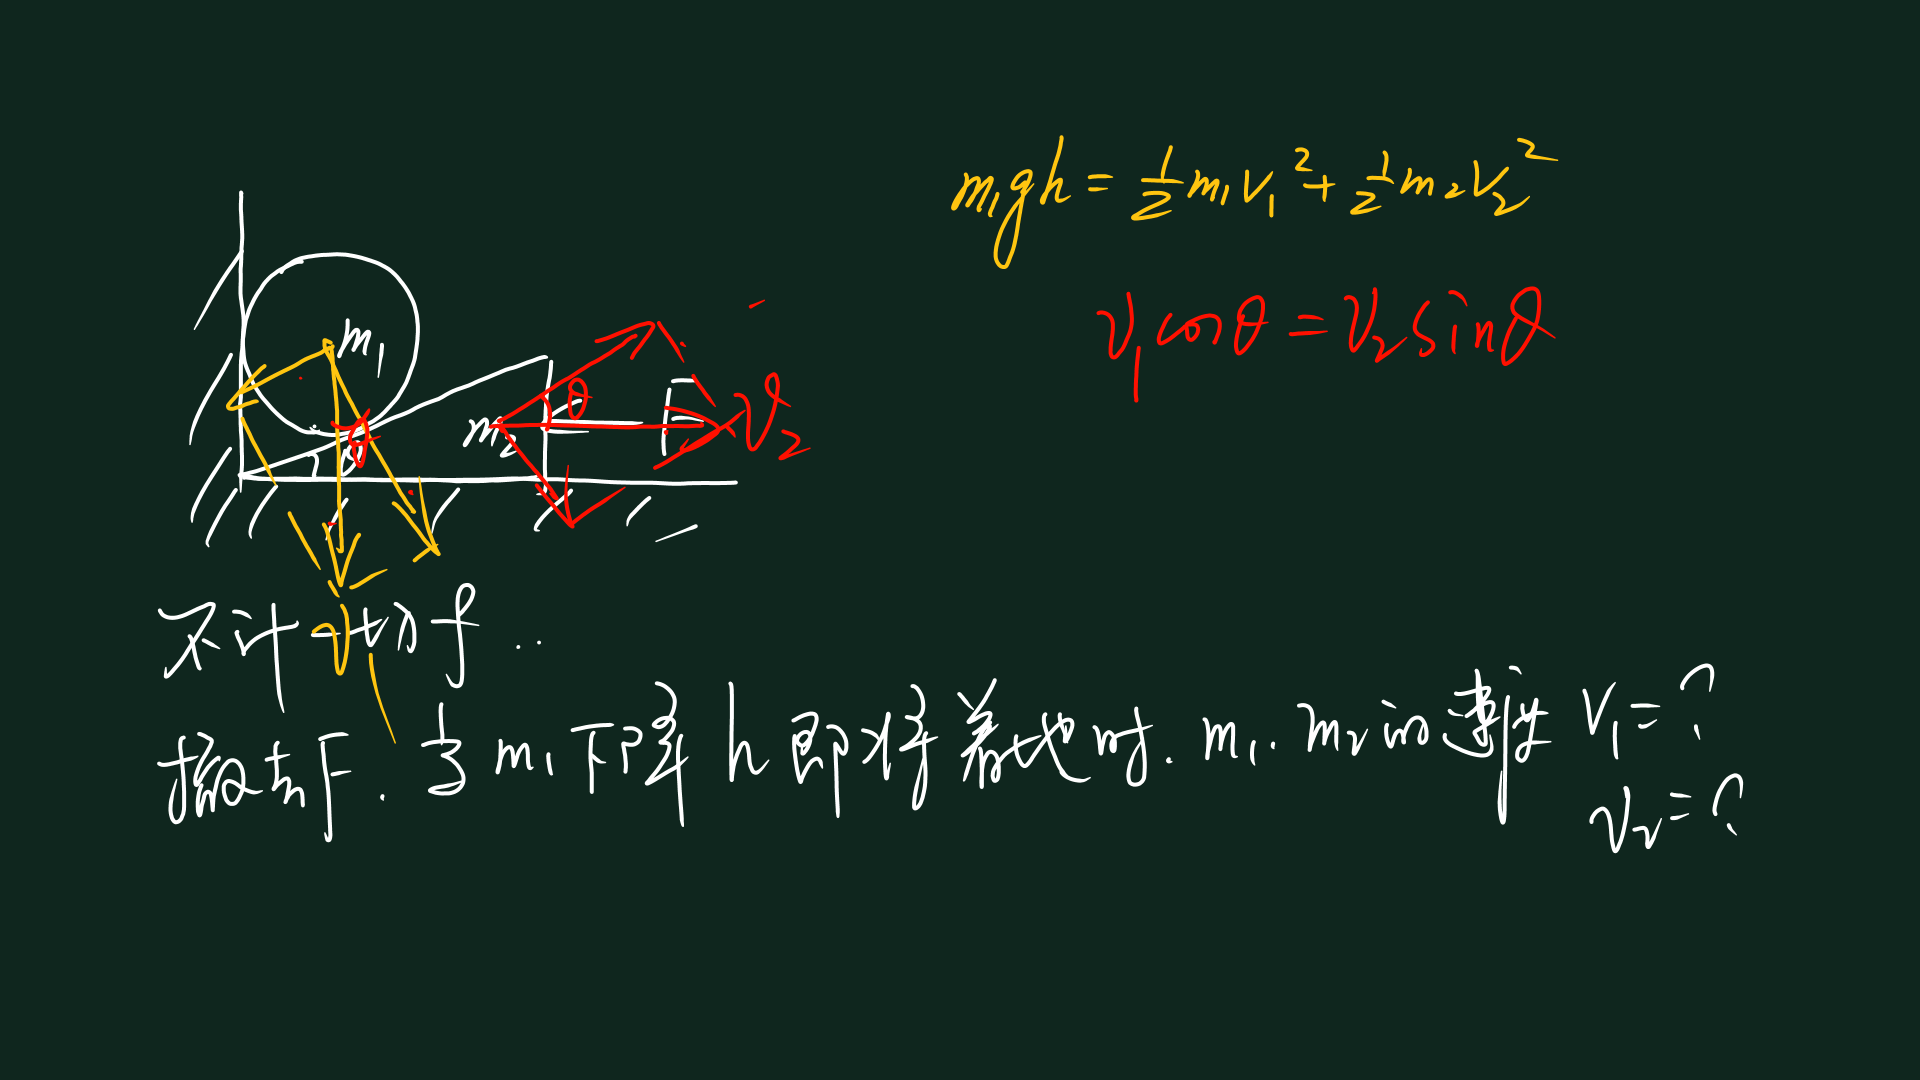 m₁gh = ½m₁v₁² + ½m₂v₂²
v₁cosθ = v₂sinθ
m₁
m₂
θ
θ
θ
F
v₂
v₁
不计一切f..
撤去F.当m₁下降h即将着地时.m₁.m₂的速度v₁=?
v₂=?